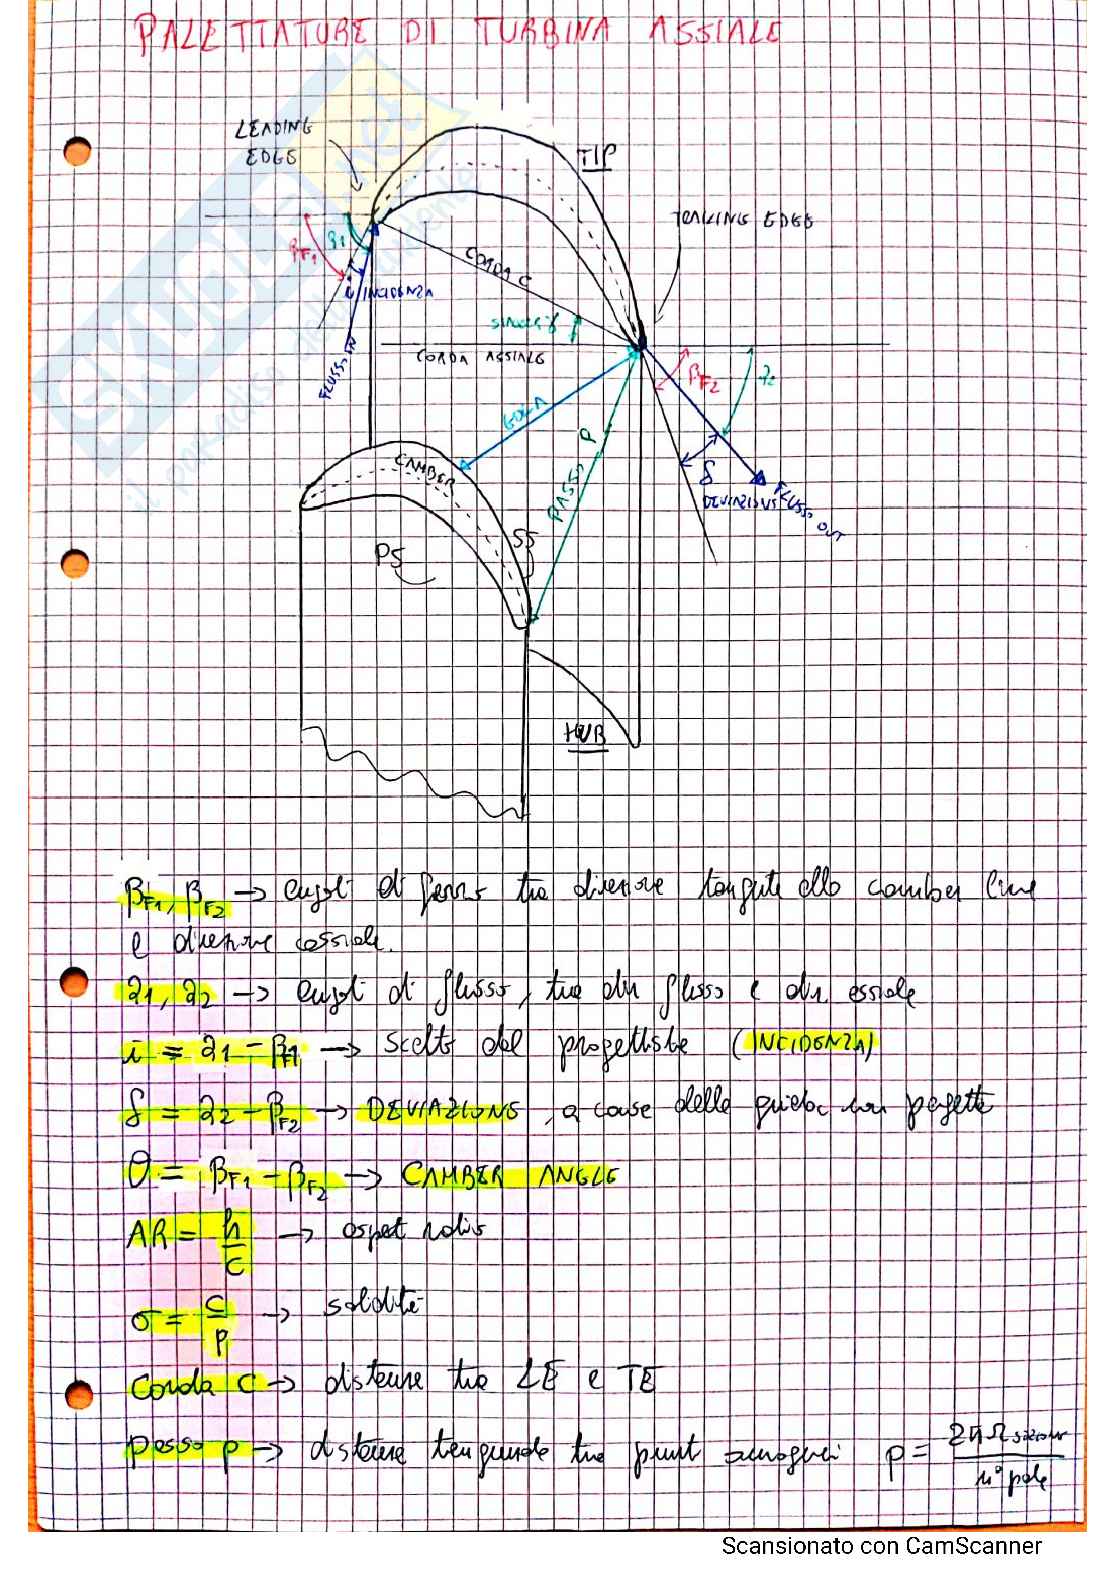 PALETTATURE DI TURBINA ASSIALE
LEADING
EDGE
TIP
TRAILING EDGE
βF1
α1
i INCIDENZA
FLUSSO IN
CORDA C
CORDA ASSIALE
βF2
α2
GOLA
PASSO P
δ
DEVIAZIONE
FLUSSO OUT
CAMBER
SS
PS
HUB
βF1, βF2 → angoli di ferro tra direzione tangente alla camber line
e direzione assiale.
α1, α2 → angoli di flusso, tra dir flusso e dir. assiale
i = α1 - βF1 → scelto dal progettista (INCIDENZA)
δ = α2 - βF2 → DEVIAZIONE, a causa della guida non perfetta
θ = βF1 - βF2 → CAMBER ANGLE
AR = h/c → aspect ratio
σ = c/p → solidità
Corda c → distanza tra LE e TE
passo p → distanza tangenziale tra punti omologhi p = 2π r / n° pale
SKUOLA.net
il paradiso dello studente
Scansionato con CamScanner